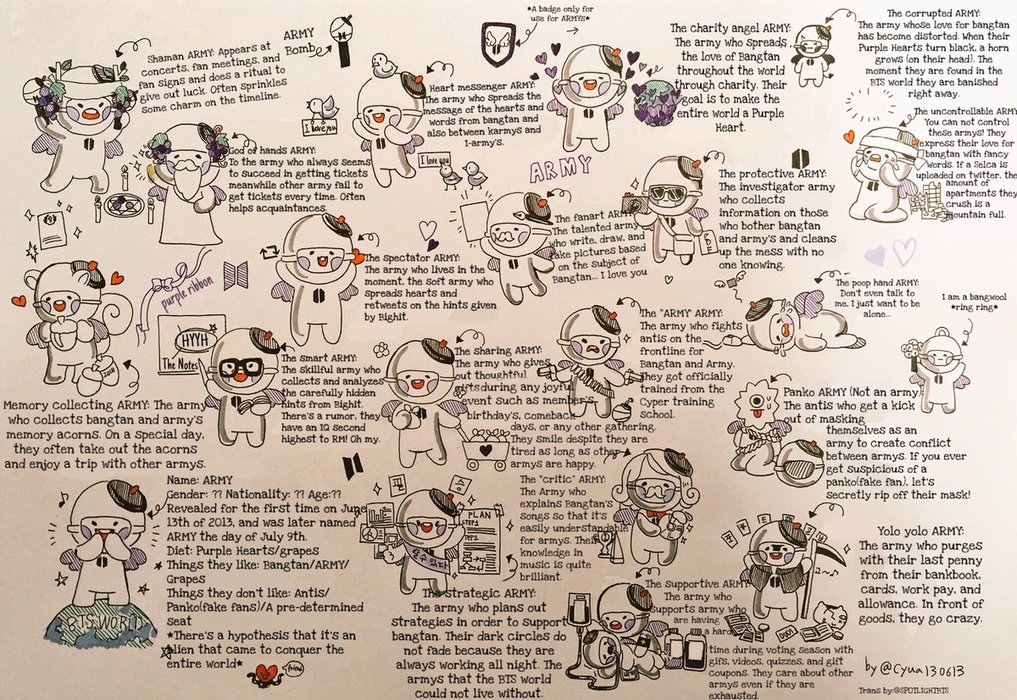 *A badge only for
use for ARMYS*
Shaman ARMY: Appears at
concerts, fan meetings, and
fan signs and does a ritual to
give out luck. Often sprinkles
some charm on the timeline.
ARMY
Bomb
I love you
God of hands ARMY:
To the army who always seems
to succeed in getting tickets
meanwhile other army fail to
get tickets every time. Often
helps acquaintances.
Heart messenger ARMY:
The army who spreads the
message of the hearts and
words from bangtan and
also between karmys and
I-army's.
I love you
The charity angel ARMY:
The army who Spreads
the love of Bangtan
throughout the World
through charity. Their
goal is to make the
entire world a Purple
Heart.
The corrupted ARMY:
The army whose love for bangtan
has become distorted. When their
Purple Hearts turn black, a horn
grows (on their head). The
moment they are found in the
BTS world they are banished
right away.
The uncontrollable ARMY
You can not control
these armys! They
express their love for
bangtan with fancy
words. If a Selca is
uploaded on twitter, the
amount of
apartments they
crush is a
mountain full.
ARMY
The Spectator ARMY:
The army who lives in the
moment, the soft army who
spreads hearts and
retweets on the hints given
by Bighit.
The fanart ARMY:
The talented army
who write, draw, and
take pictures based
on the subject of
Bangtan... I love you
The protective ARMY:
The investigator army
who collects
information on those
who bother bangtan
and army's and cleans
up the mess with no
one knowing.
purple ribbon
The poop hand ARMY:
Don't even talk to
me, I just want to be
alone...
I am a bangwool
*ring ring*
HYYH
The Notes
Love
Memory collecting ARMY: The army
who collects bangtan and army's
memory acorns. On a special day,
they often take out the acorns
and enjoy a trip with other armys.
The smart ARMY:
The skillful army who
collects and analyzes
the carefully hidden
hints from Bighit.
There's a rumor, they
have an IQ second
highest to RM! Oh my.
The sharing ARMY:
The army who gives
out thoughtful
gifts during any joyful
event such as member's
birthday's, comeback
days, or any other gathering.
They smile despite they are
tired as long as other
armys are happy.
The "ARMY" ARMY:
The army who fights
antis on the
frontline for
Bangtan and Army.
They got officially
trained from the
Cyper training
School.
Panko ARMY (Not an army)
The antis who get a kick
out of masking
themselves as an
army to create conflict
between armys. If you ever
get suspicious of a
panko(fake fan), let's
secretly rip off their mask!
Name: ARMY
Gender: ?? Nationality: ?? Age:??
Revealed for the first time on June
13th of 2013, and was later named
ARMY the day of July 9th.
Diet: Purple Hearts/grapes
Things they like: Bangtan/ARMY/
Grapes
Things they don't like: Antis/
Panko(fake fans)/A pre-determined
seat
*There's a hypothesis that it's an
alien that came to conquer the
entire world*
BTS WORLD
friend
PLAN
STEP1
The strategic ARMY:
The army who plans out
strategies in order to support
bangtan. Their dark circles do
not fade because they are
always working all night. The
armys that the BTS world
could not live without.
The "critic" ARMY:
The Army who
explains Bangtan's
Songs so that it's
easily understandable
for armys. Their
knowledge in
music is quite
brilliant.
The Supportive ARMY:
The army who
supports army who
are having a
a hard
time during voting season with
gifs, videos, quizzes, and gift
coupons. They care about other
armys even if they are
exhausted.
Yolo yolo ARMY:
The army who purges
with their last penny
from their bankbook,
cards, work pay, and
allowance. In front of
goods, they go crazy.
by @Cyaa130613
Trans by:@SPOTLIGHTBTS